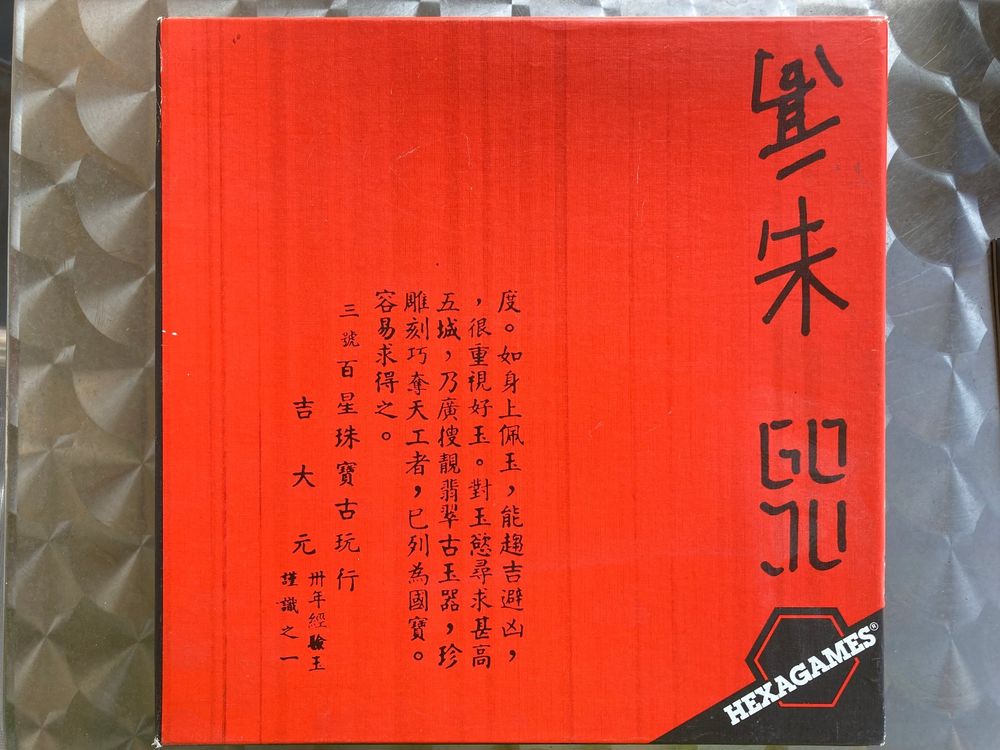 度。如身上佩玉，能趨吉避凶，
，很重視好玉。對玉慾尋求甚高
五城，乃廣搜靚翡翠古玉器，珍
雕刻巧奪天工者，已列為國寶。
容易求得之。
三號百星珠寶古玩行
卅年經驗玉
吉大元
謹識之一
HEXAGAMES®